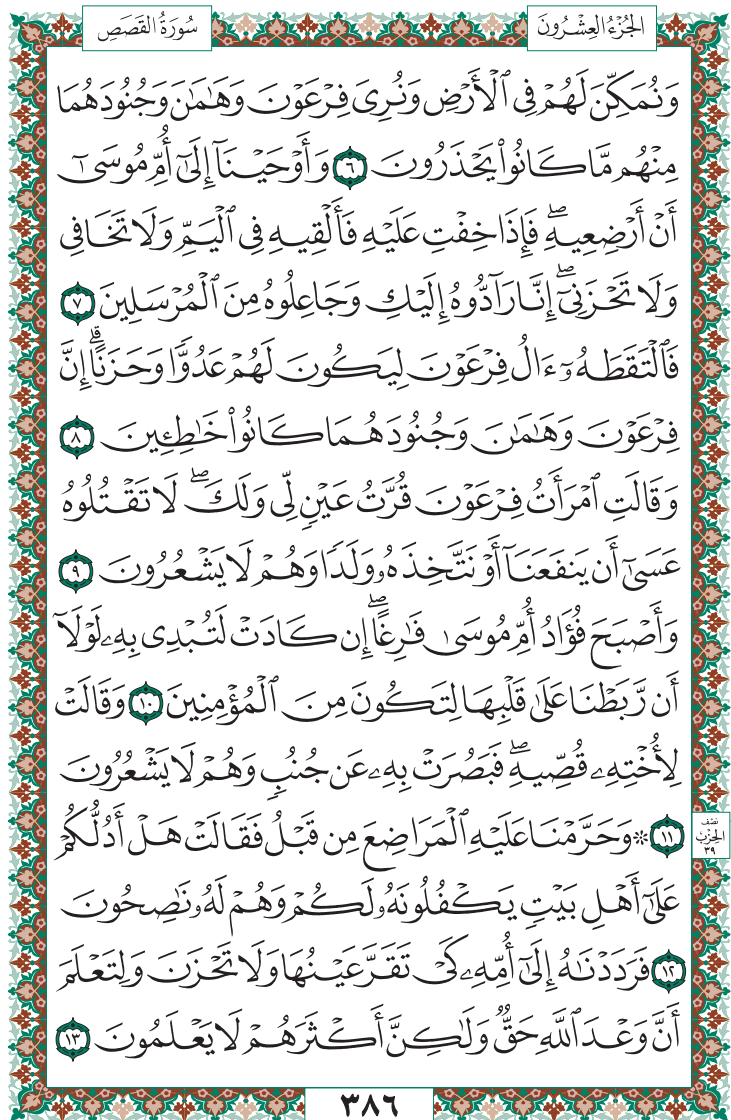 الجُزْءُ العِشْرُونَ
سُورَةُ القَصَصِ
وَنُمَكِّنَ لَهُمْ فِي ٱلْأَرْضِ وَنُرِيَ فِرْعَوْنَ وَهَٰمَٰنَ وَجُنُودَهُمَا
مِنْهُم مَّا كَانُوا۟ يَحْذَرُونَ ٦ وَأَوْحَيْنَآ إِلَىٰٓ أُمِّ مُوسَىٰٓ
أَنْ أَرْضِعِيهِ ۖ فَإِذَا خِفْتِ عَلَيْهِ فَأَلْقِيهِ فِي ٱلْيَمِّ وَلَا تَخَافِي
وَلَا تَحْزَنِيٓ ۖ إِنَّا رَآدُّوهُ إِلَيْكِ وَجَاعِلُوهُ مِنَ ٱلْمُرْسَلِينَ ٧
فَٱلْتَقَطَهُۥٓ ءَالُ فِرْعَوْنَ لِيَكُونَ لَهُمْ عَدُوًّا وَحَزَنًا ۗ إِنَّ
فِرْعَوْنَ وَهَٰمَٰنَ وَجُنُودَهُمَا كَانُوا۟ خَٰطِـِٔينَ ٨
وَقَالَتِ ٱمْرَأَتُ فِرْعَوْنَ قُرَّتُ عَيْنٍ لِّي وَلَكَ ۖ لَا تَقْتُلُوهُ
عَسَىٰٓ أَن يَنفَعَنَآ أَوْ نَتَّخِذَهُۥ وَلَدًا وَهُمْ لَا يَشْعُرُونَ ٩
وَأَصْبَحَ فُؤَادُ أُمِّ مُوسَىٰ فَٰرِغًا ۖ إِن كَادَتْ لَتُبْدِي بِهِۦ لَوْلَآ
أَن رَّبَطْنَا عَلَىٰ قَلْبِهَا لِتَكُونَ مِنَ ٱلْمُؤْمِنِينَ ١٠ وَقَالَتْ
لِأُخْتِهِۦ قُصِّيهِ ۖ فَبَصُرَتْ بِهِۦ عَن جُنُبٍ وَهُمْ لَا يَشْعُرُونَ
١١ ۞ وَحَرَّمْنَا عَلَيْهِ ٱلْمَرَاضِعَ مِن قَبْلُ فَقَالَتْ هَلْ أَدُلُّكُمْ
نصف
الحِزْب
٣٩
عَلَىٰٓ أَهْلِ بَيْتٍ يَكْفُلُونَهُۥ لَكُمْ وَهُمْ لَهُۥ نَٰصِحُونَ
١٢ فَرَدَدْنَٰهُ إِلَىٰٓ أُمِّهِۦ كَيْ تَقَرَّ عَيْنُهَا وَلَا تَحْزَنَ وَلِتَعْلَمَ
أَنَّ وَعْدَ ٱللَّهِ حَقٌّ وَلَٰكِنَّ أَكْثَرَهُمْ لَا يَعْلَمُونَ ١٣
٣٨٦